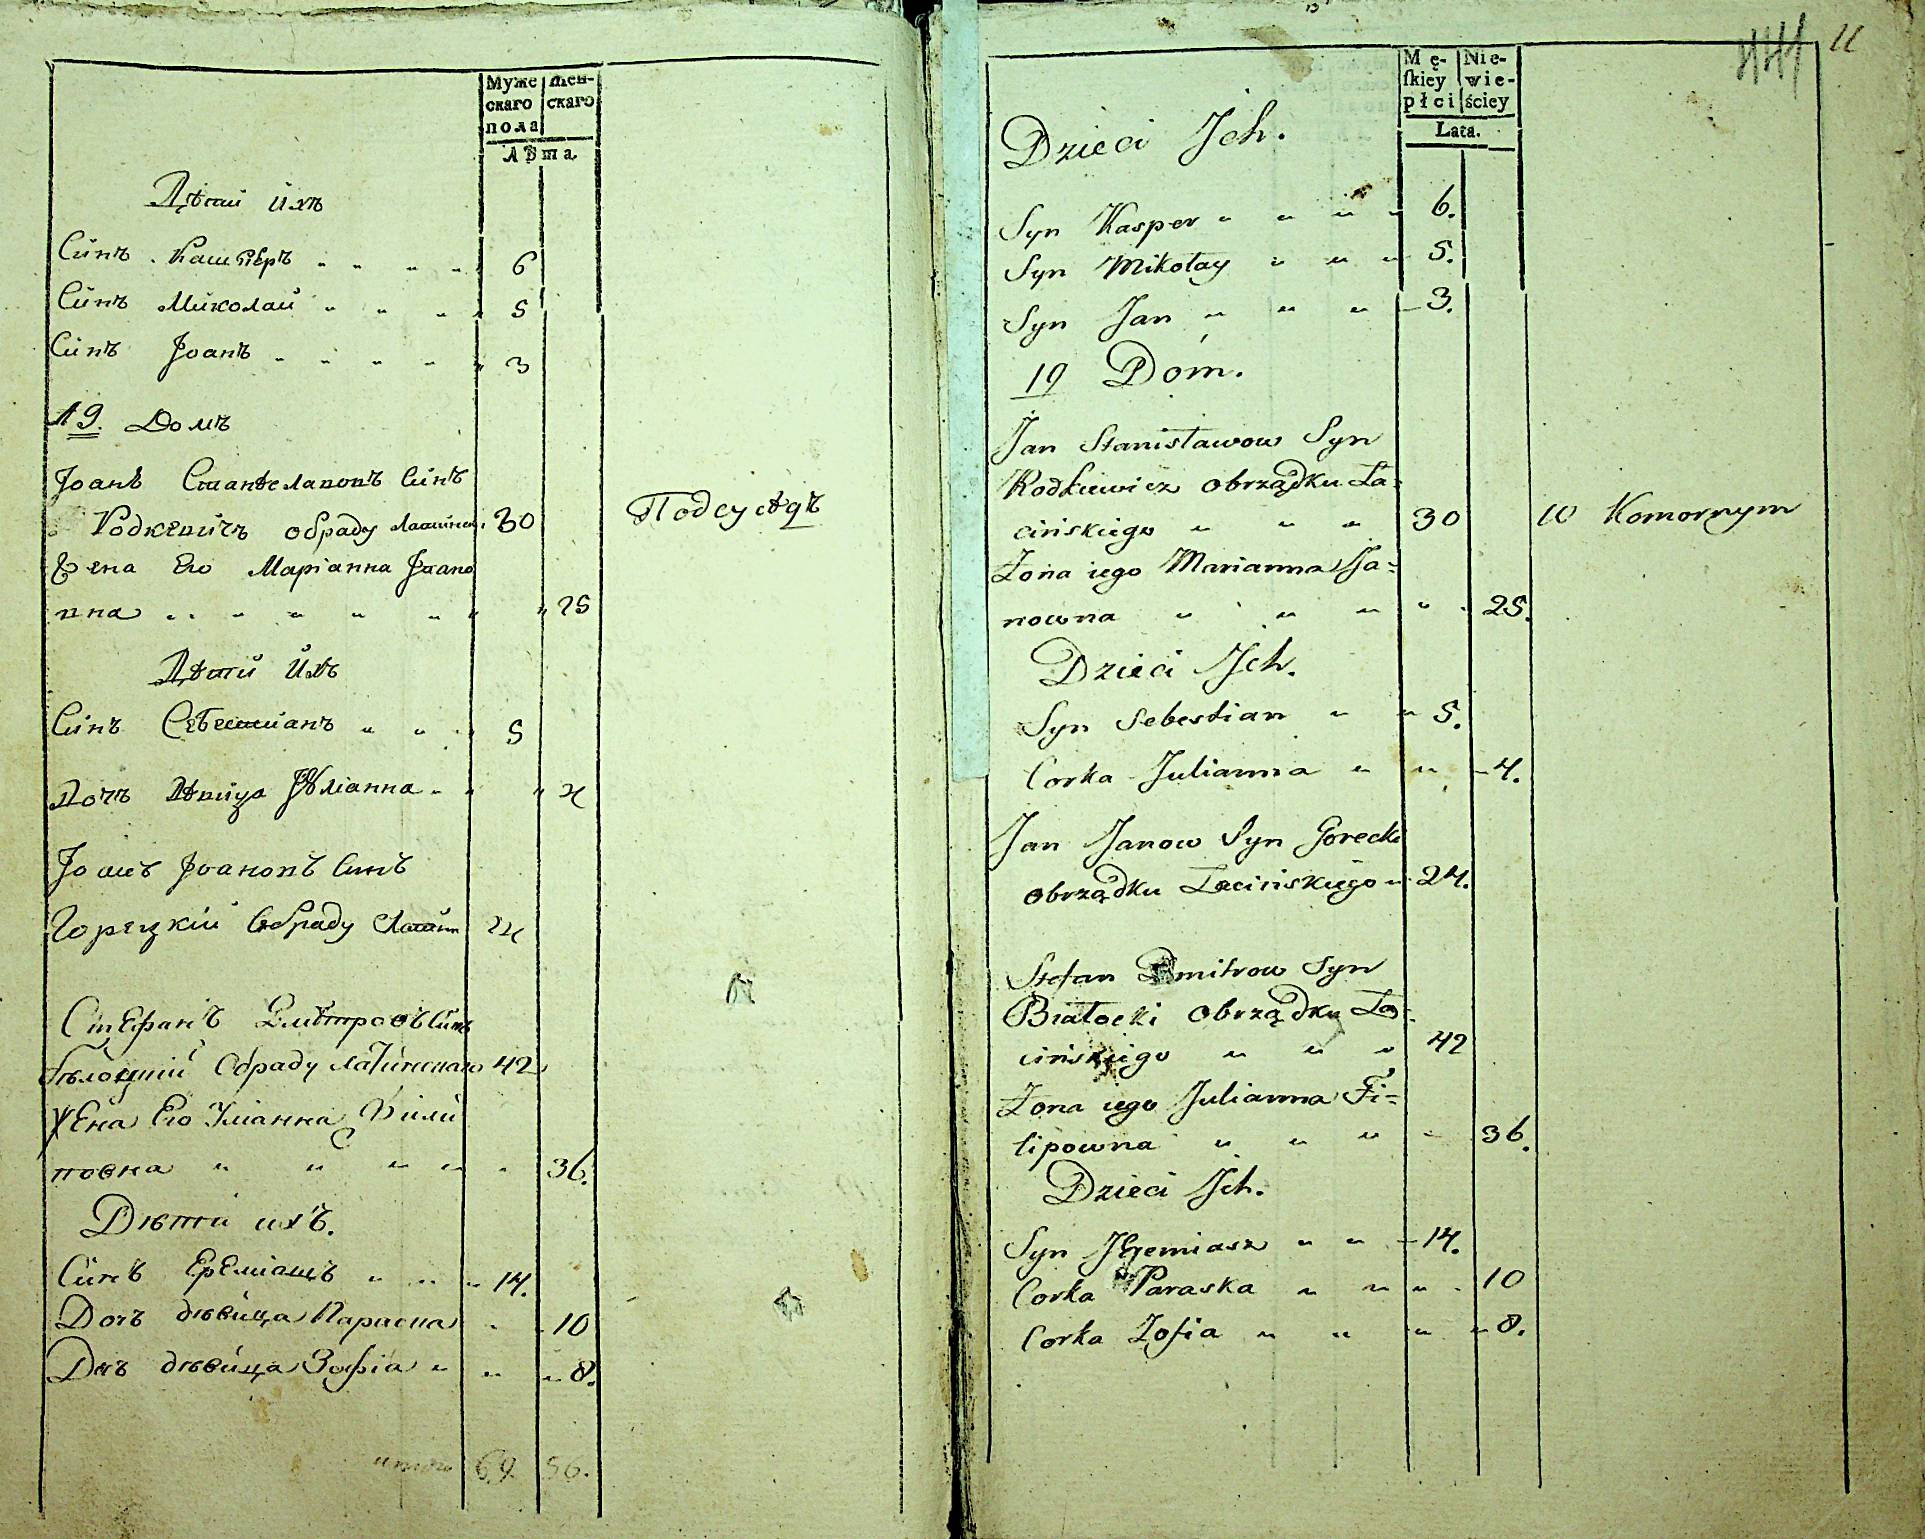 Муже
скаго
пола
Жен-
скаго
Лѣта.
Дѣтй ихъ
Синъ Кашперъ 6
Синъ Миколай 5
Синъ Јоанъ 3
19. Домъ
Јоанъ Станиславовъ Синъ
Родкевичъ обраду Латинск. 30
Подсусѣдъ
Жена Его Маріанна Јоано
вна 25
Дѣтй Ихъ
Синъ Себестианъ 5
Дочъ Дѣвица Юліанна 4
Јоанъ Јоановъ Синъ
Горецкій Обраду Латин 24
Стефанъ Дмитровъ Синъ
Бѣлоцкий Обраду латинскаго 42
Жена Его Улианна Фили
повна 36.
Дѣтй ихъ.
Синъ Еремиашъ 14.
Дочъ дѣвица Параска 10
Дочъ дѣвица Зофіа 8.
итого 69. 56.
11
Mę-
skiey
płci
Nie-
wie-
ściey
Lata.
Dzieci Jch.
Syn Kasper 6.
Syn Mikołay 5.
Syn Jan 3.
19 Dom.
Jan Stanisławow Syn
Rodkiewicz obrządku Ła=
cińskiego 30
W Komornym
Żona iego Marianna Ja=
nowna 25.
Dzieci Jch.
Syn Sebestian 5.
Corka Julianna 4.
Jan Janow Syn Gorecki
obrządku Łacińskiego 24.
Stefan Dmitrow Syn
Białocki Obrządku Ła=
cińskiego 42
Żona iego Julianna Fi=
lipowna 36.
Dzieci Jch.
Syn Jeremiasz 14.
Corka Paraska 10
Corka Zofia 8.